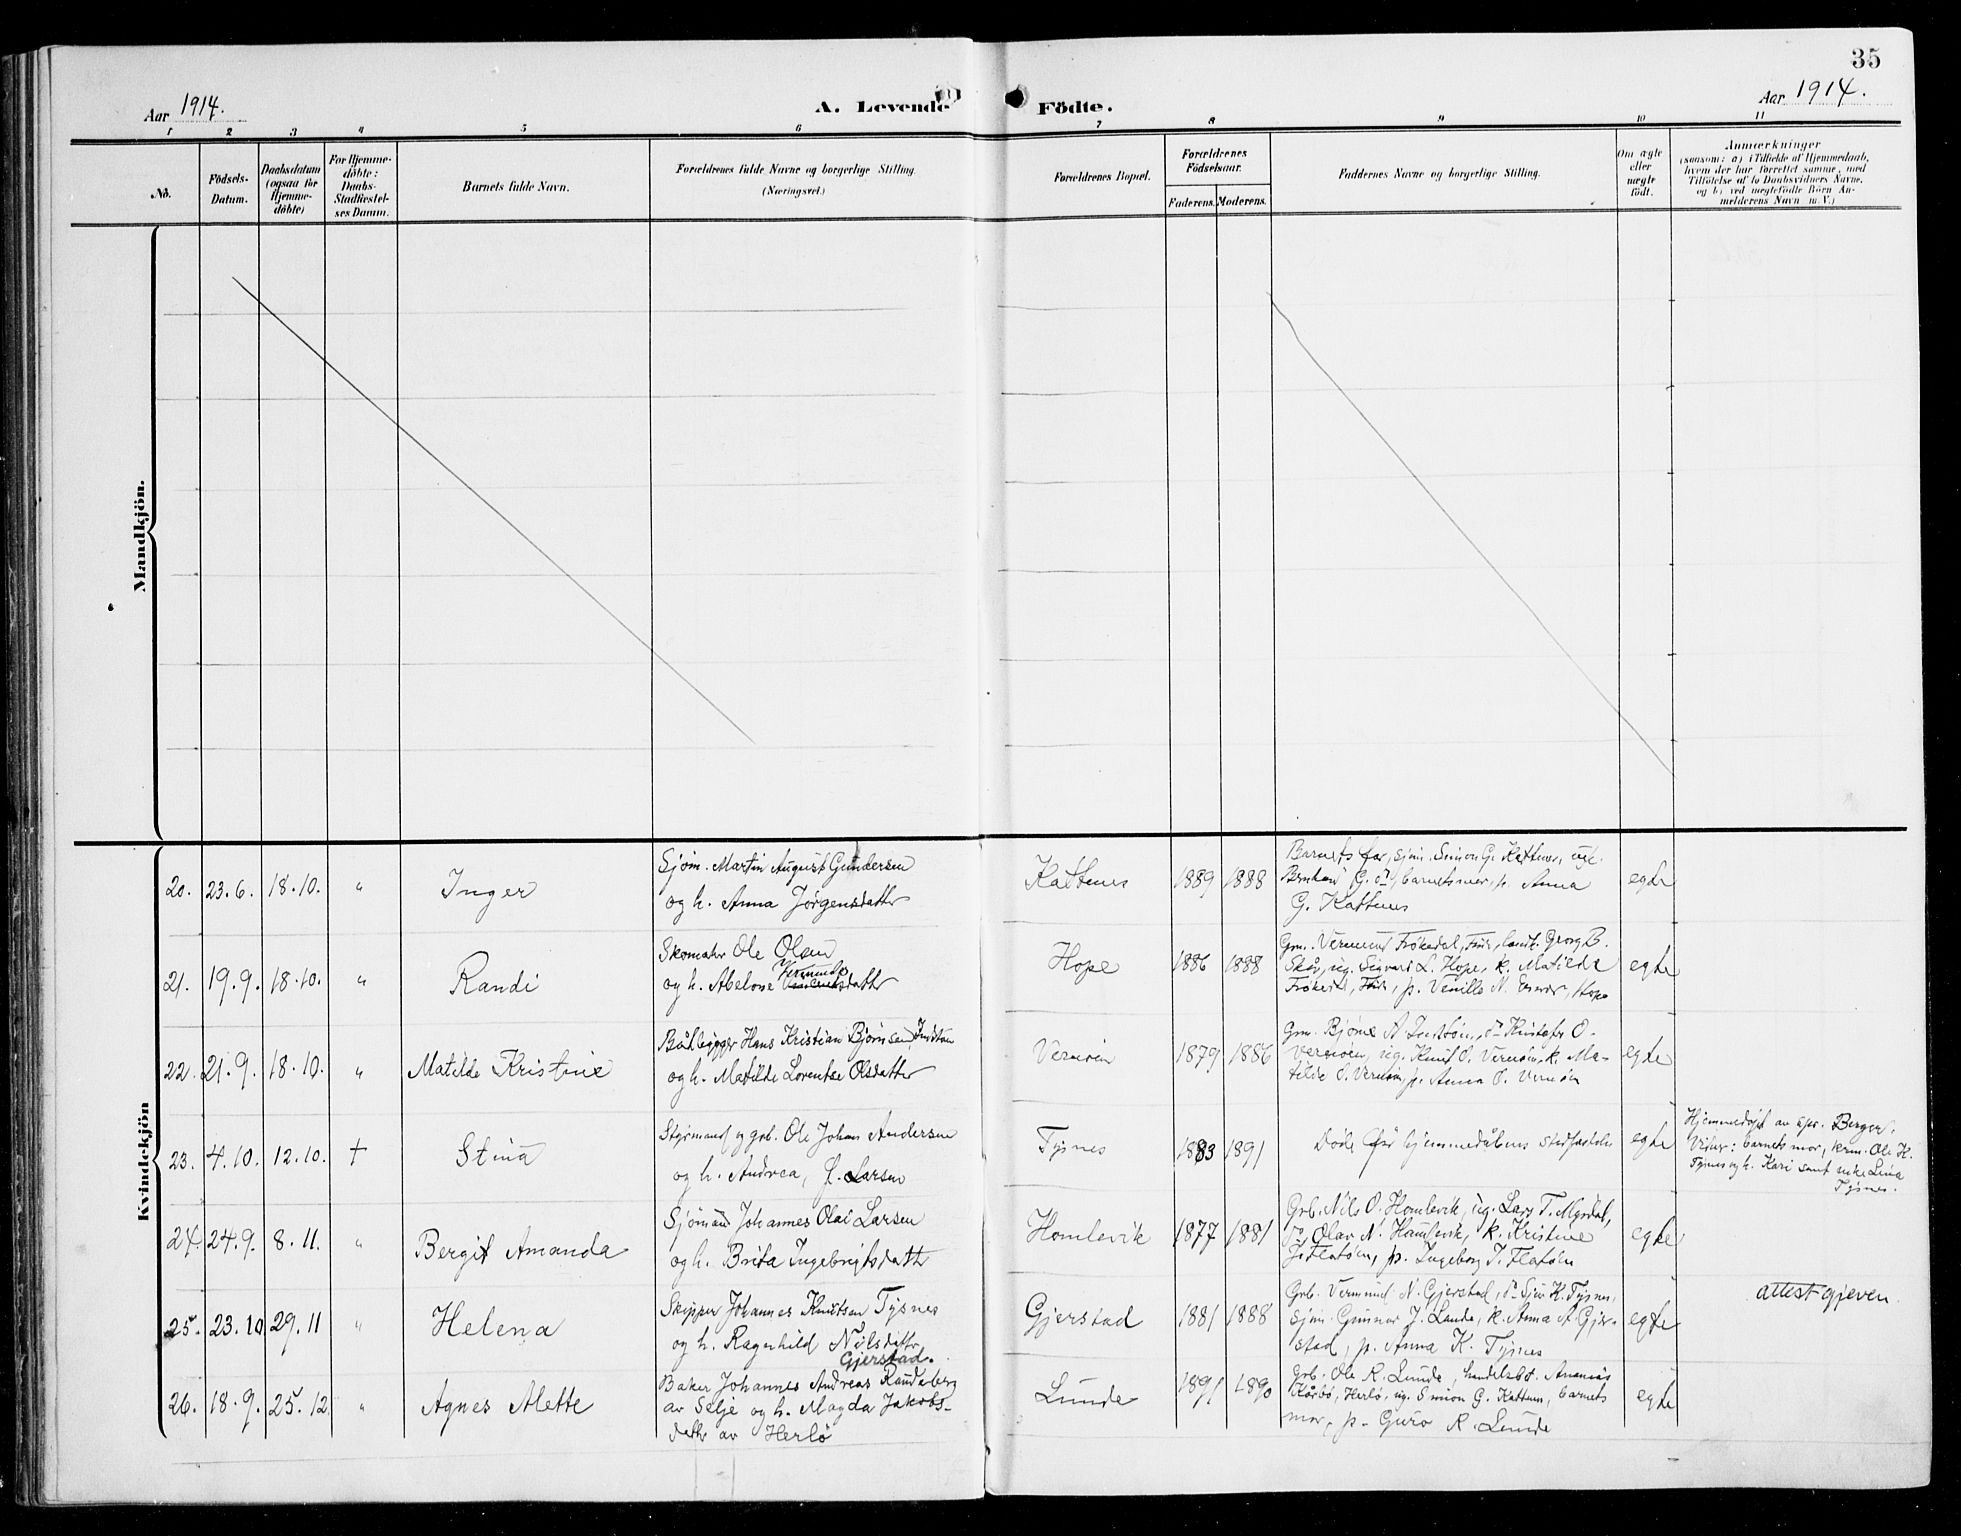 35
Aar 1914.
A. Levende Födte.
Aar 1914.
1 2 3 4 5 6 7 8 9 10 11
No.
Födsels-
Datum.
Daabsdatum
(ogsaa for
Hjemme-
döbte)
For Hjemme-
döbte:
Daabs-
Stadfæstel-
ses Datum.
Barnets fulde Navn.
Forældrenes fulde Navne og borgerlige Stilling.
(Næringsvei.)
Forældrenes Bopæl.
Forældrenes
Födselsaar.
Faderens. Moderens.
Faddernes Navne og borgerlige Stilling.
Om ægte
eller
uægte
födt.
Anmærkninger
(saasom: a) i Tilfælde af Hjemmedaab,
hvem der har forrettet samme, med
Tilföielse af to Daabsvidners Navne,
og b) ved uægtefödte Börn An-
melderens Navn m. V.)
Mandkjön.
Kvindekjön
20. 23.6. 18.10. " Inger
Sjøm. Martin August Gundersen
og h. Anna Jørgensdatter
Kattnes 1889 1888
Barnets far, sjøm. Simon G. Kattnes, ug.
Bernhard G. do, barnets mor, p. Anna
G. Kattnes
egte
21. 19.9. 18.10. " Randi
Skomaker Ole Olsen
og h. Abelone Vermunds datter
Hope 1886 1888
Grn. Vermund Frøkedal, Georg B.
Skår, ug. Sigvard L. Hope, k. Matilde
p. Hope
egte
22. 21.9. 18.10. " Matilde Kristine
Båtbygger Hans Kristian Bjørnsen
og h. Matilde Lorentse Olsdatter
Vernøen 1879 1886
Grm. Bjørne A. do Kristofer O.
Vernøen, ug. Knut O. Vernøen, k. Ma-
tilde O. Vernøen, p. Anna O. Vernøen
egte
23. 4.10. 12.10. † Stina
Styrmand og grb. Ole Johan Andersen
og h. Andrea, f. Larsen
Tysnes 1883 1891
Døde før hjemmedåbens
egte
Hjemmedøpt av spr. Berger.
Vidner: barnets mor, krm. Ole H.
Tysnes og h. Kari samt enke Lina
Tysnes.
24. 24.9. 8.11. " Bergit Amanda
Sjømand Johannes Olai Larsen
og h. Brita Ingebrigtsdatter
Homlevik 1877 1881
Grb. Nils O. Homlevik, ug. Lars T. Myrdal,
do Olav N. Homlevik, k. Kristine
J. Flatøen, p. Ingeborg J. Flatøen
egte
25. 23.10 29.11 " Helena
Skipper Johannes Knutsen Tysnes
og h. Ragnhild Nilsdatter
Gjerstad.
Gjerstad 1881 1888
Grb. Vermund N. Gjerstad, do Sjur K. Tysnes,
Sjøm. Gunnar J. Lunde, k. Anna N. Gjer-
stad, p. Anna K. Tysnes
egte
attest gjeven.
26. 18.9. 25.12. " Agnes Alette
Baker Johannes Andreas Raudeberg
av Selje og h. Magda Jakobs-
datter av Herlö
Lunde 1891 1890
Grb. Ole R. Lunde, handelsbst. Ananias
Herlø, ug. Simon G. Kattnes, barnets
mor, p. Guro R. Lunde
egte